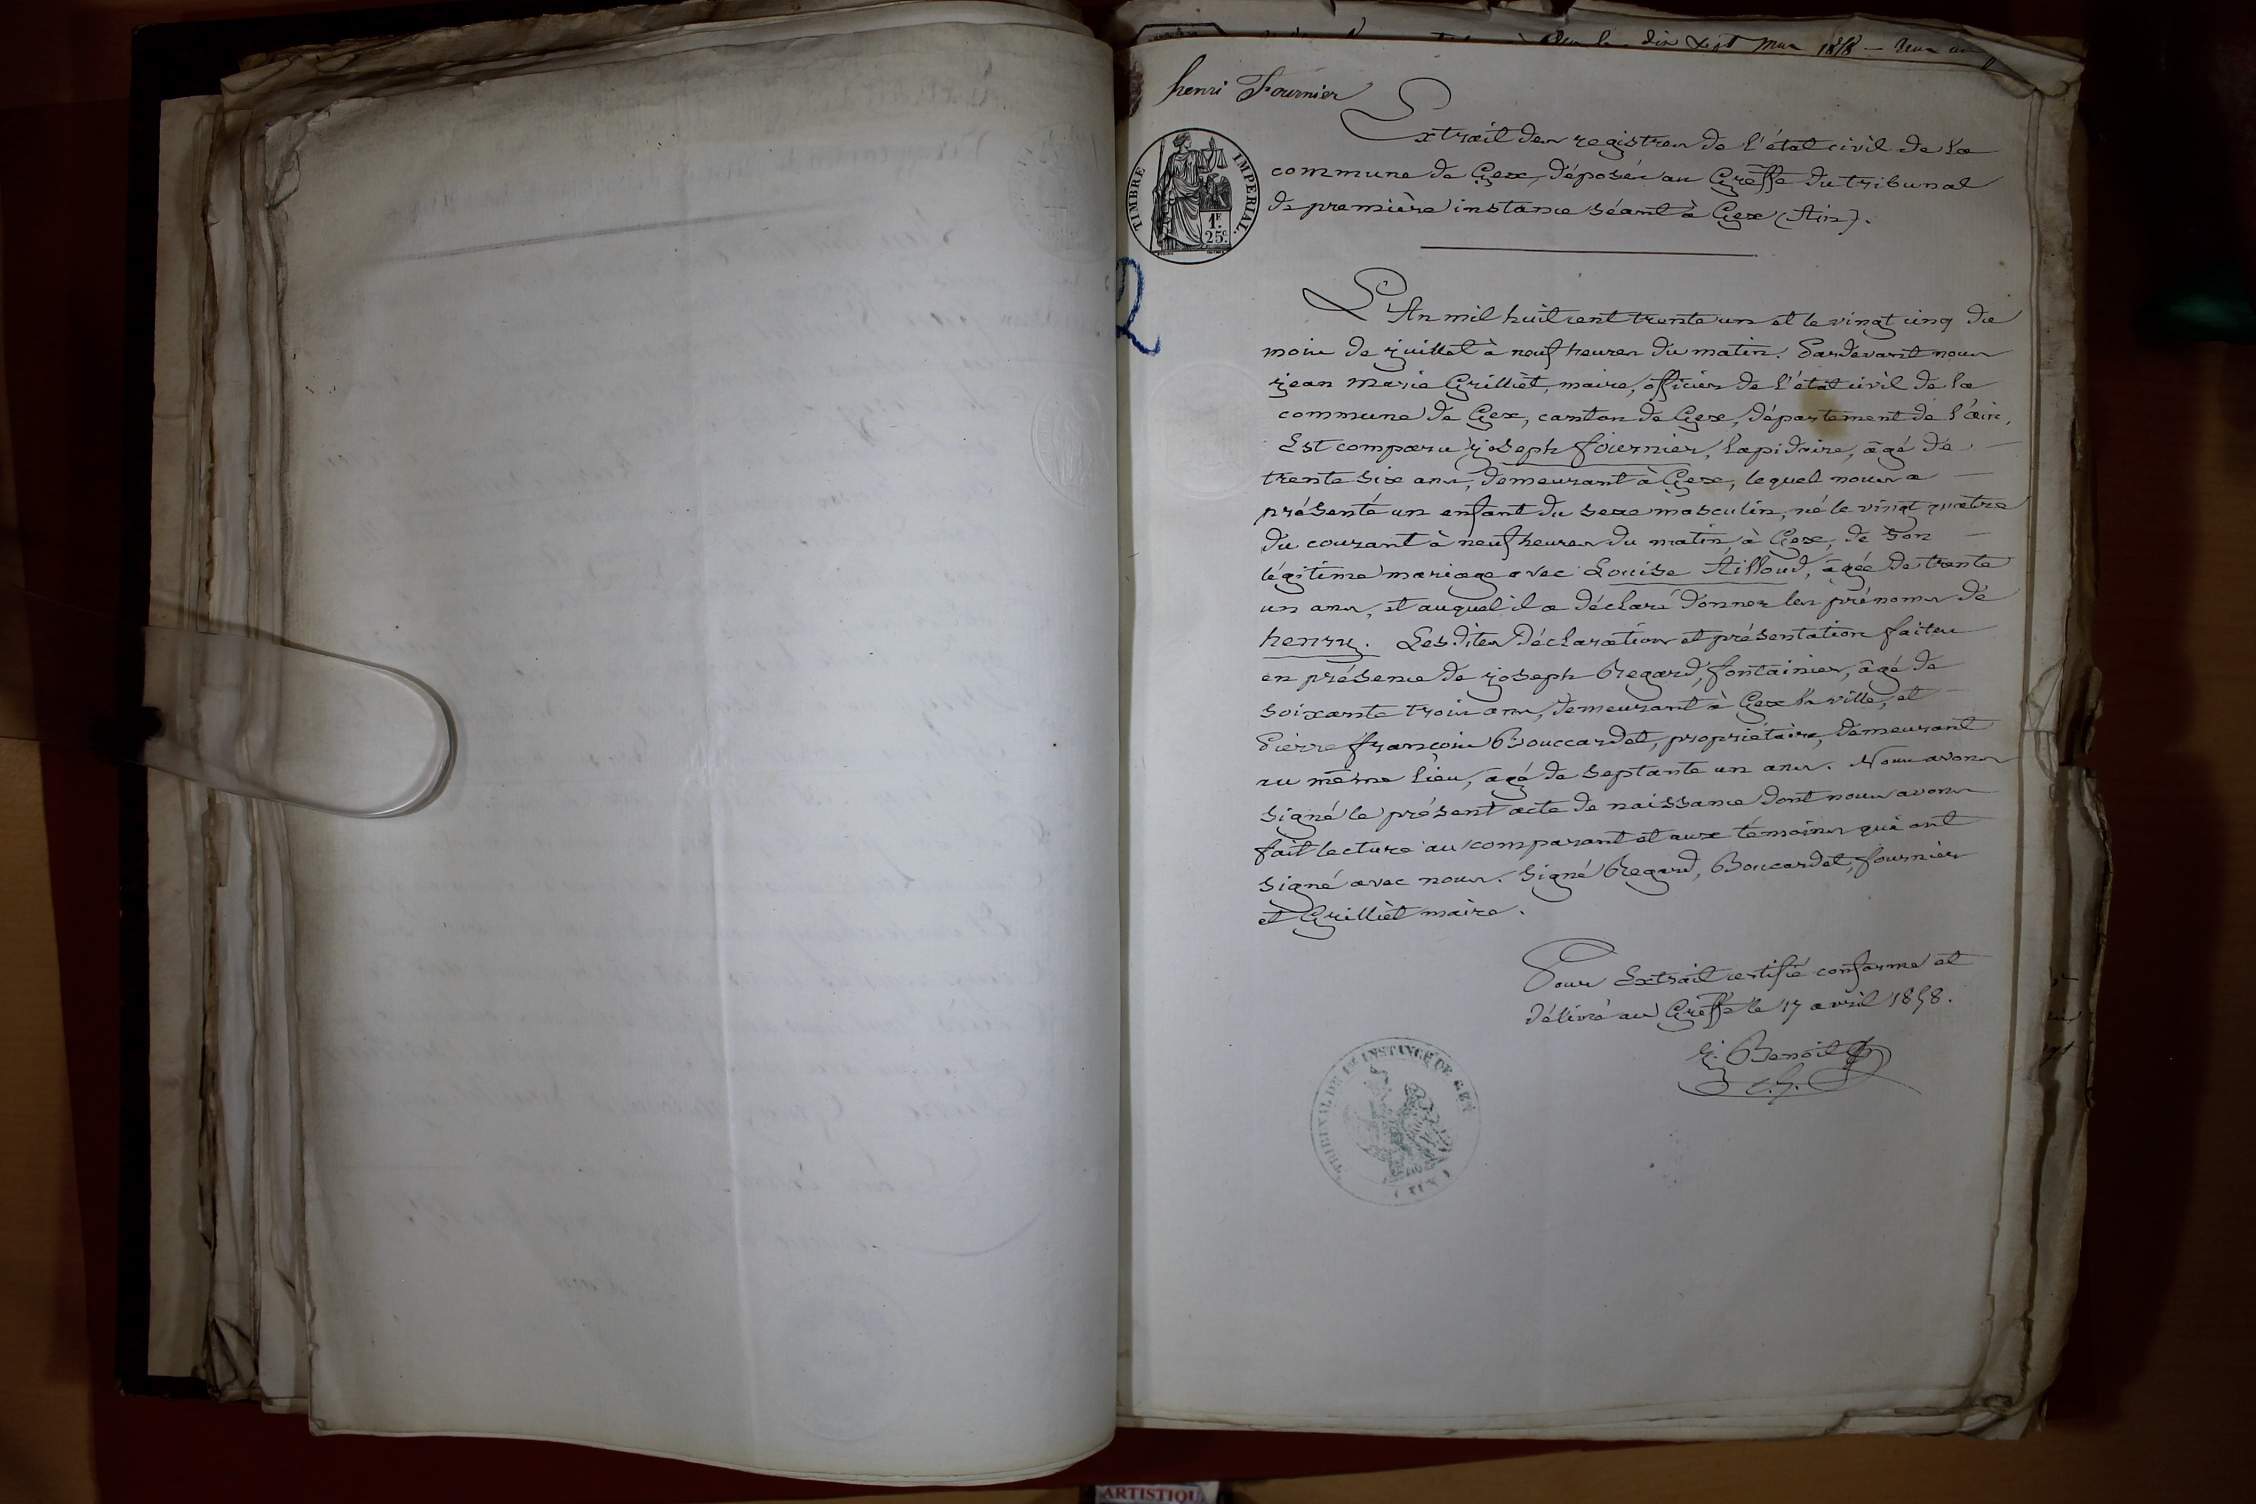 henri Fournier
TIMBRE IMPERIAL
1F.
25c.
2
Extrait des registres de l'état civil de la
commune de Gex, déposés au Greffe du tribunal
de première instance séant à Gex (Ain).
L'An mil huit cent trente un et le vingt cinq du
mois de juillet à neuf heures du matin. Pardevant nous
jean Marie Grilliet, maire, officier de l'état civil de la
commune de Gex, canton de Gex, département de l'ain,
Est comparu joseph fournier, Lapidaire, âgé de
trente six ans, demeurant à Gex, lequel nous a
présenté un enfant du sexe masculin, né le vingt quatre
du courant à neuf heures du matin, à Gex, de son
légitime mariage avec Louise Ailloud, âgée de trente
un ans, et auquel il a déclaré donner les prénoms de
henry. Lesdites déclaration et présentation faites
en présence de joseph Regard, fontainier, âgé de
soixante trois ans, demeurant à Gex la ville, et
Pierre françois Bouccardet, propriétaire, demeurant
au même lieu, âgé de septante un ans. Nous avons
signé le présent acte de naissance dont nous avons
fait lecture au comparant et aux témoins qui ont
signé avec nous. Signé Regard, Bouccardet, fournier
et Grilliet maire.
Pour Extrait certifié conforme et
délivré au Greffe le 17 avril 1858.
Benoit
TRIBUNAL DE 1RE INSTANCE DE GEX
(AIN)
ARTISTIQU